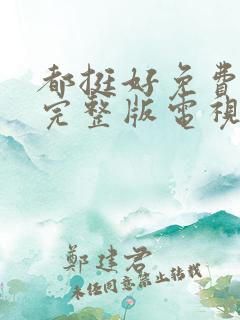 都挺好免費
完整版電視
鄭建君
未任同意禁止转载